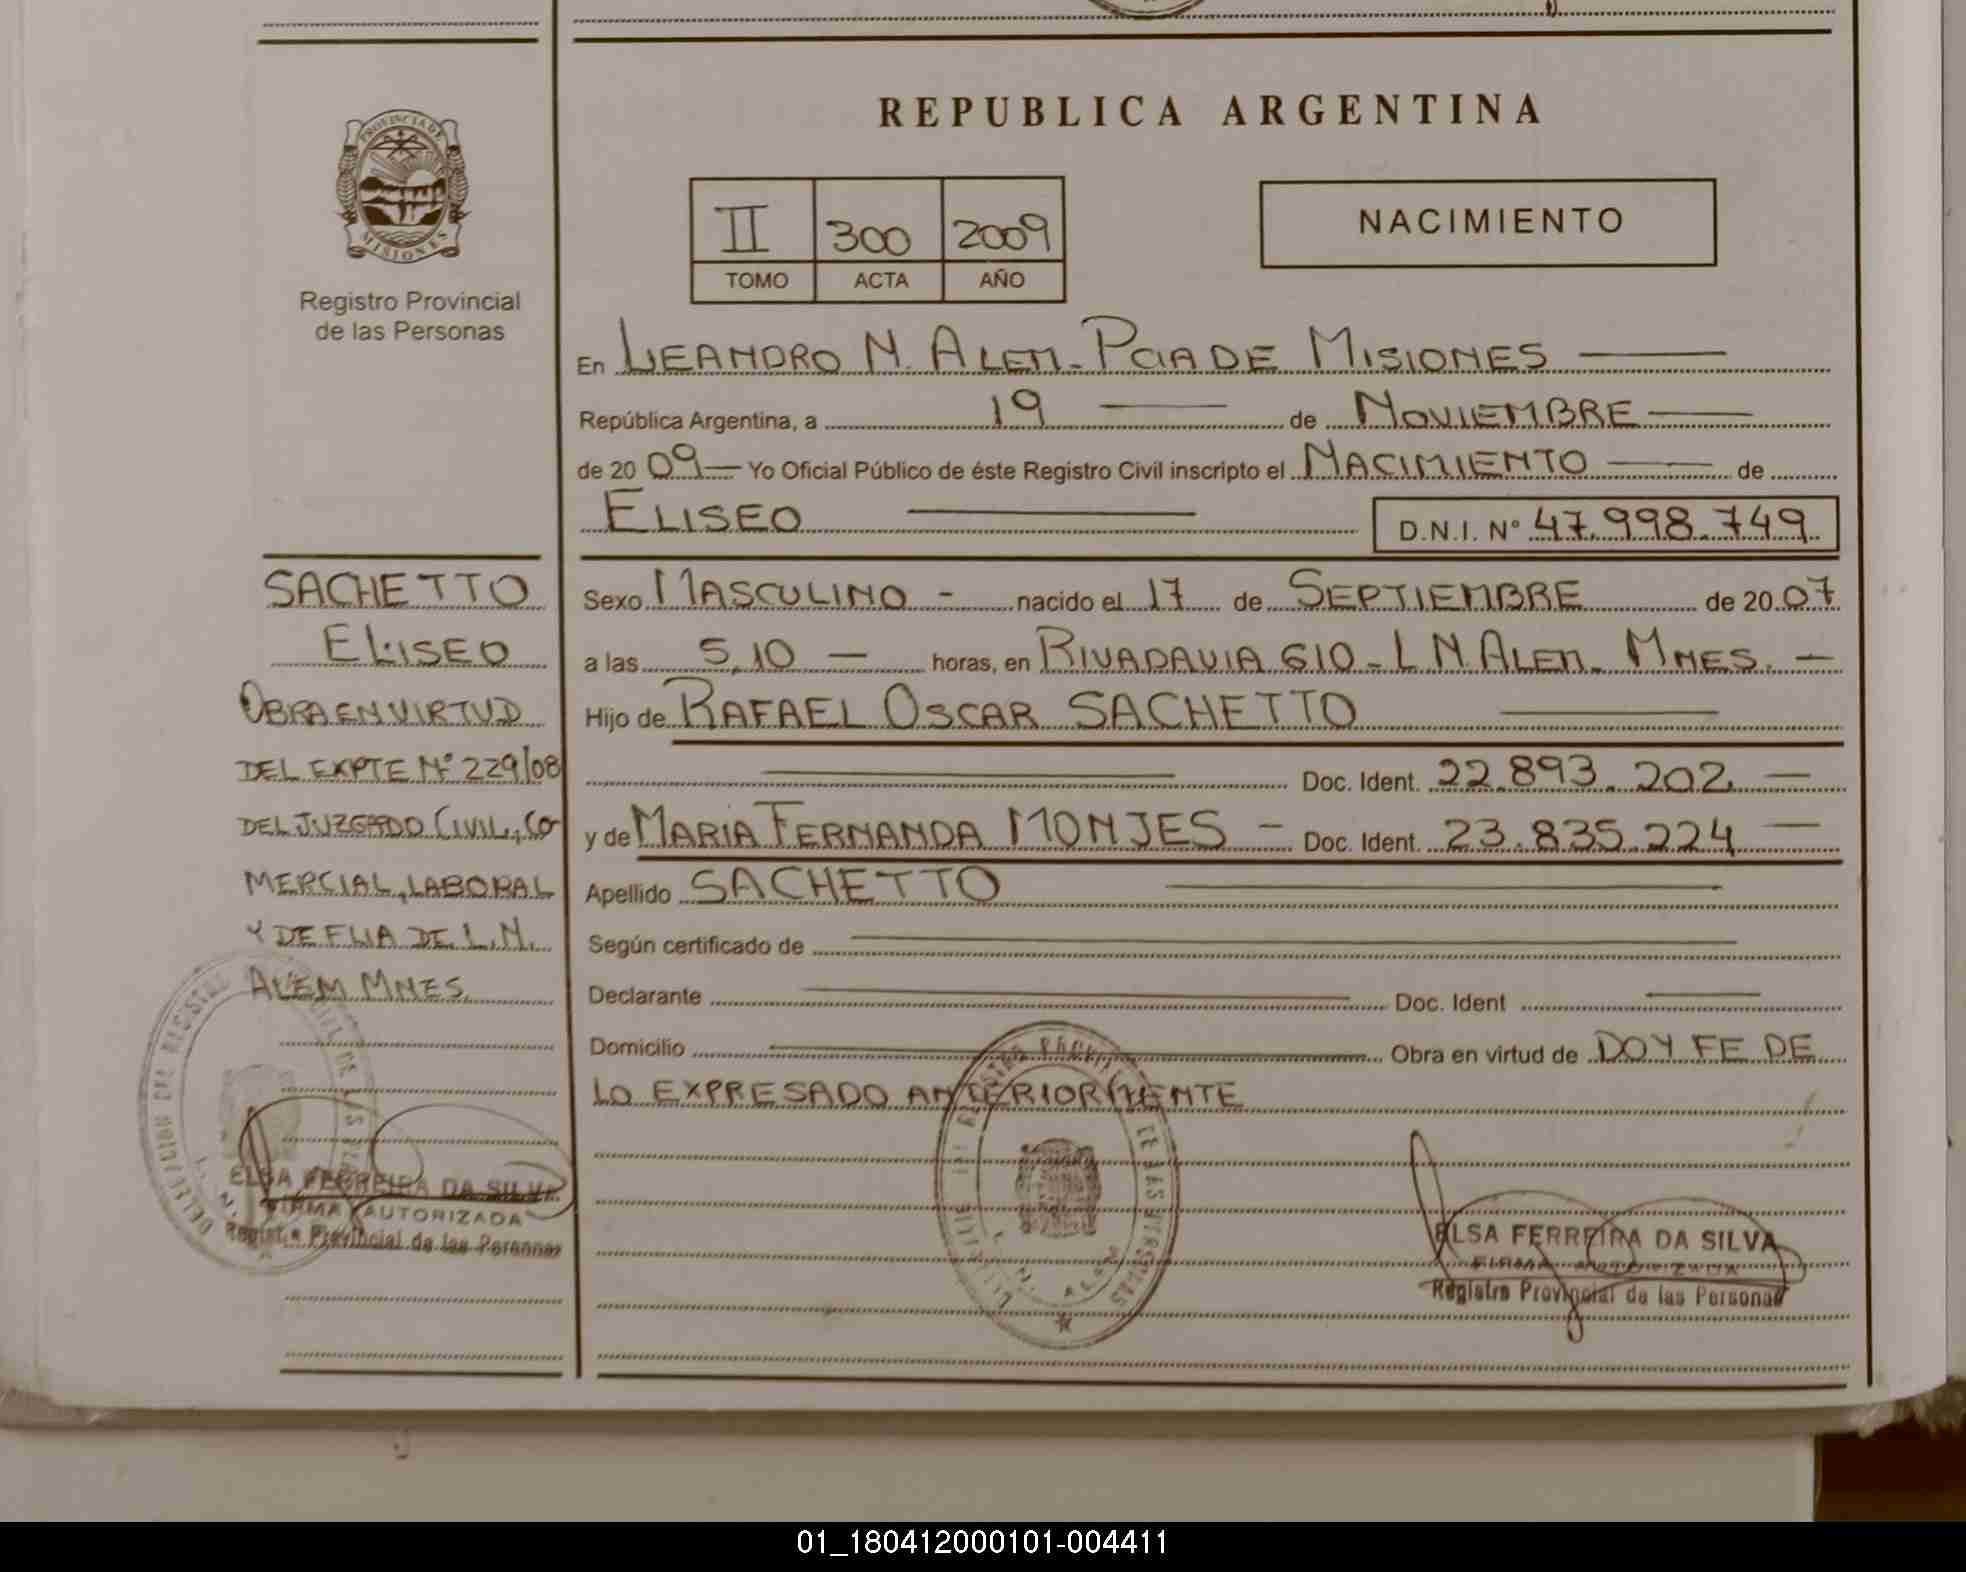 REPUBLICA ARGENTINA
PROVINCIA DE
MISIONES
Registro Provincial
de las Personas
II 300 2009
TOMO ACTA AÑO
NACIMIENTO
En LEANDRO N. ALEM - PCIA DE MISIONES
República Argentina, a 19 de NOVIEMBRE
de 20 09 Yo Oficial Público de éste Registro Civil inscripto el NACIMIENTO de
ELISEO
D.N.I. Nº 47.998.749
Sexo MASCULINO - nacido el 17 de SEPTIEMBRE de 20 07
a las 5,10 — horas, en RIVADAVIA 610 - L N. ALEM - MNES. —
Hijo de RAFAEL OSCAR SACHETTO
Doc. Ident. 22.893.202 —
y de MARIA FERNANDA MONJES - Doc. Ident. 23.835.224 —
Apellido SACHETTO
Según certificado de
Declarante Doc. Ident
Domicilio Obra en virtud de DOY FE DE
LO EXPRESADO ANTERIORMENTE
SACHETTO
ELISEO
OBRA EN VIRTUD
DEL EXPTE Nº 229/08
DEL JUZGADO CIVIL, CO-
MERCIAL, LABORAL
Y DE FLIA DE L.N.
ALEM MNES.
ELSA FERREIRA DA SILVA
FIRMA AUTORIZADA
Registro Provincial de las Personas
ELSA FERREIRA DA SILVA
FIRMA AUTORIZADA
Registro Provincial de las Personas
01_180412000101-004411